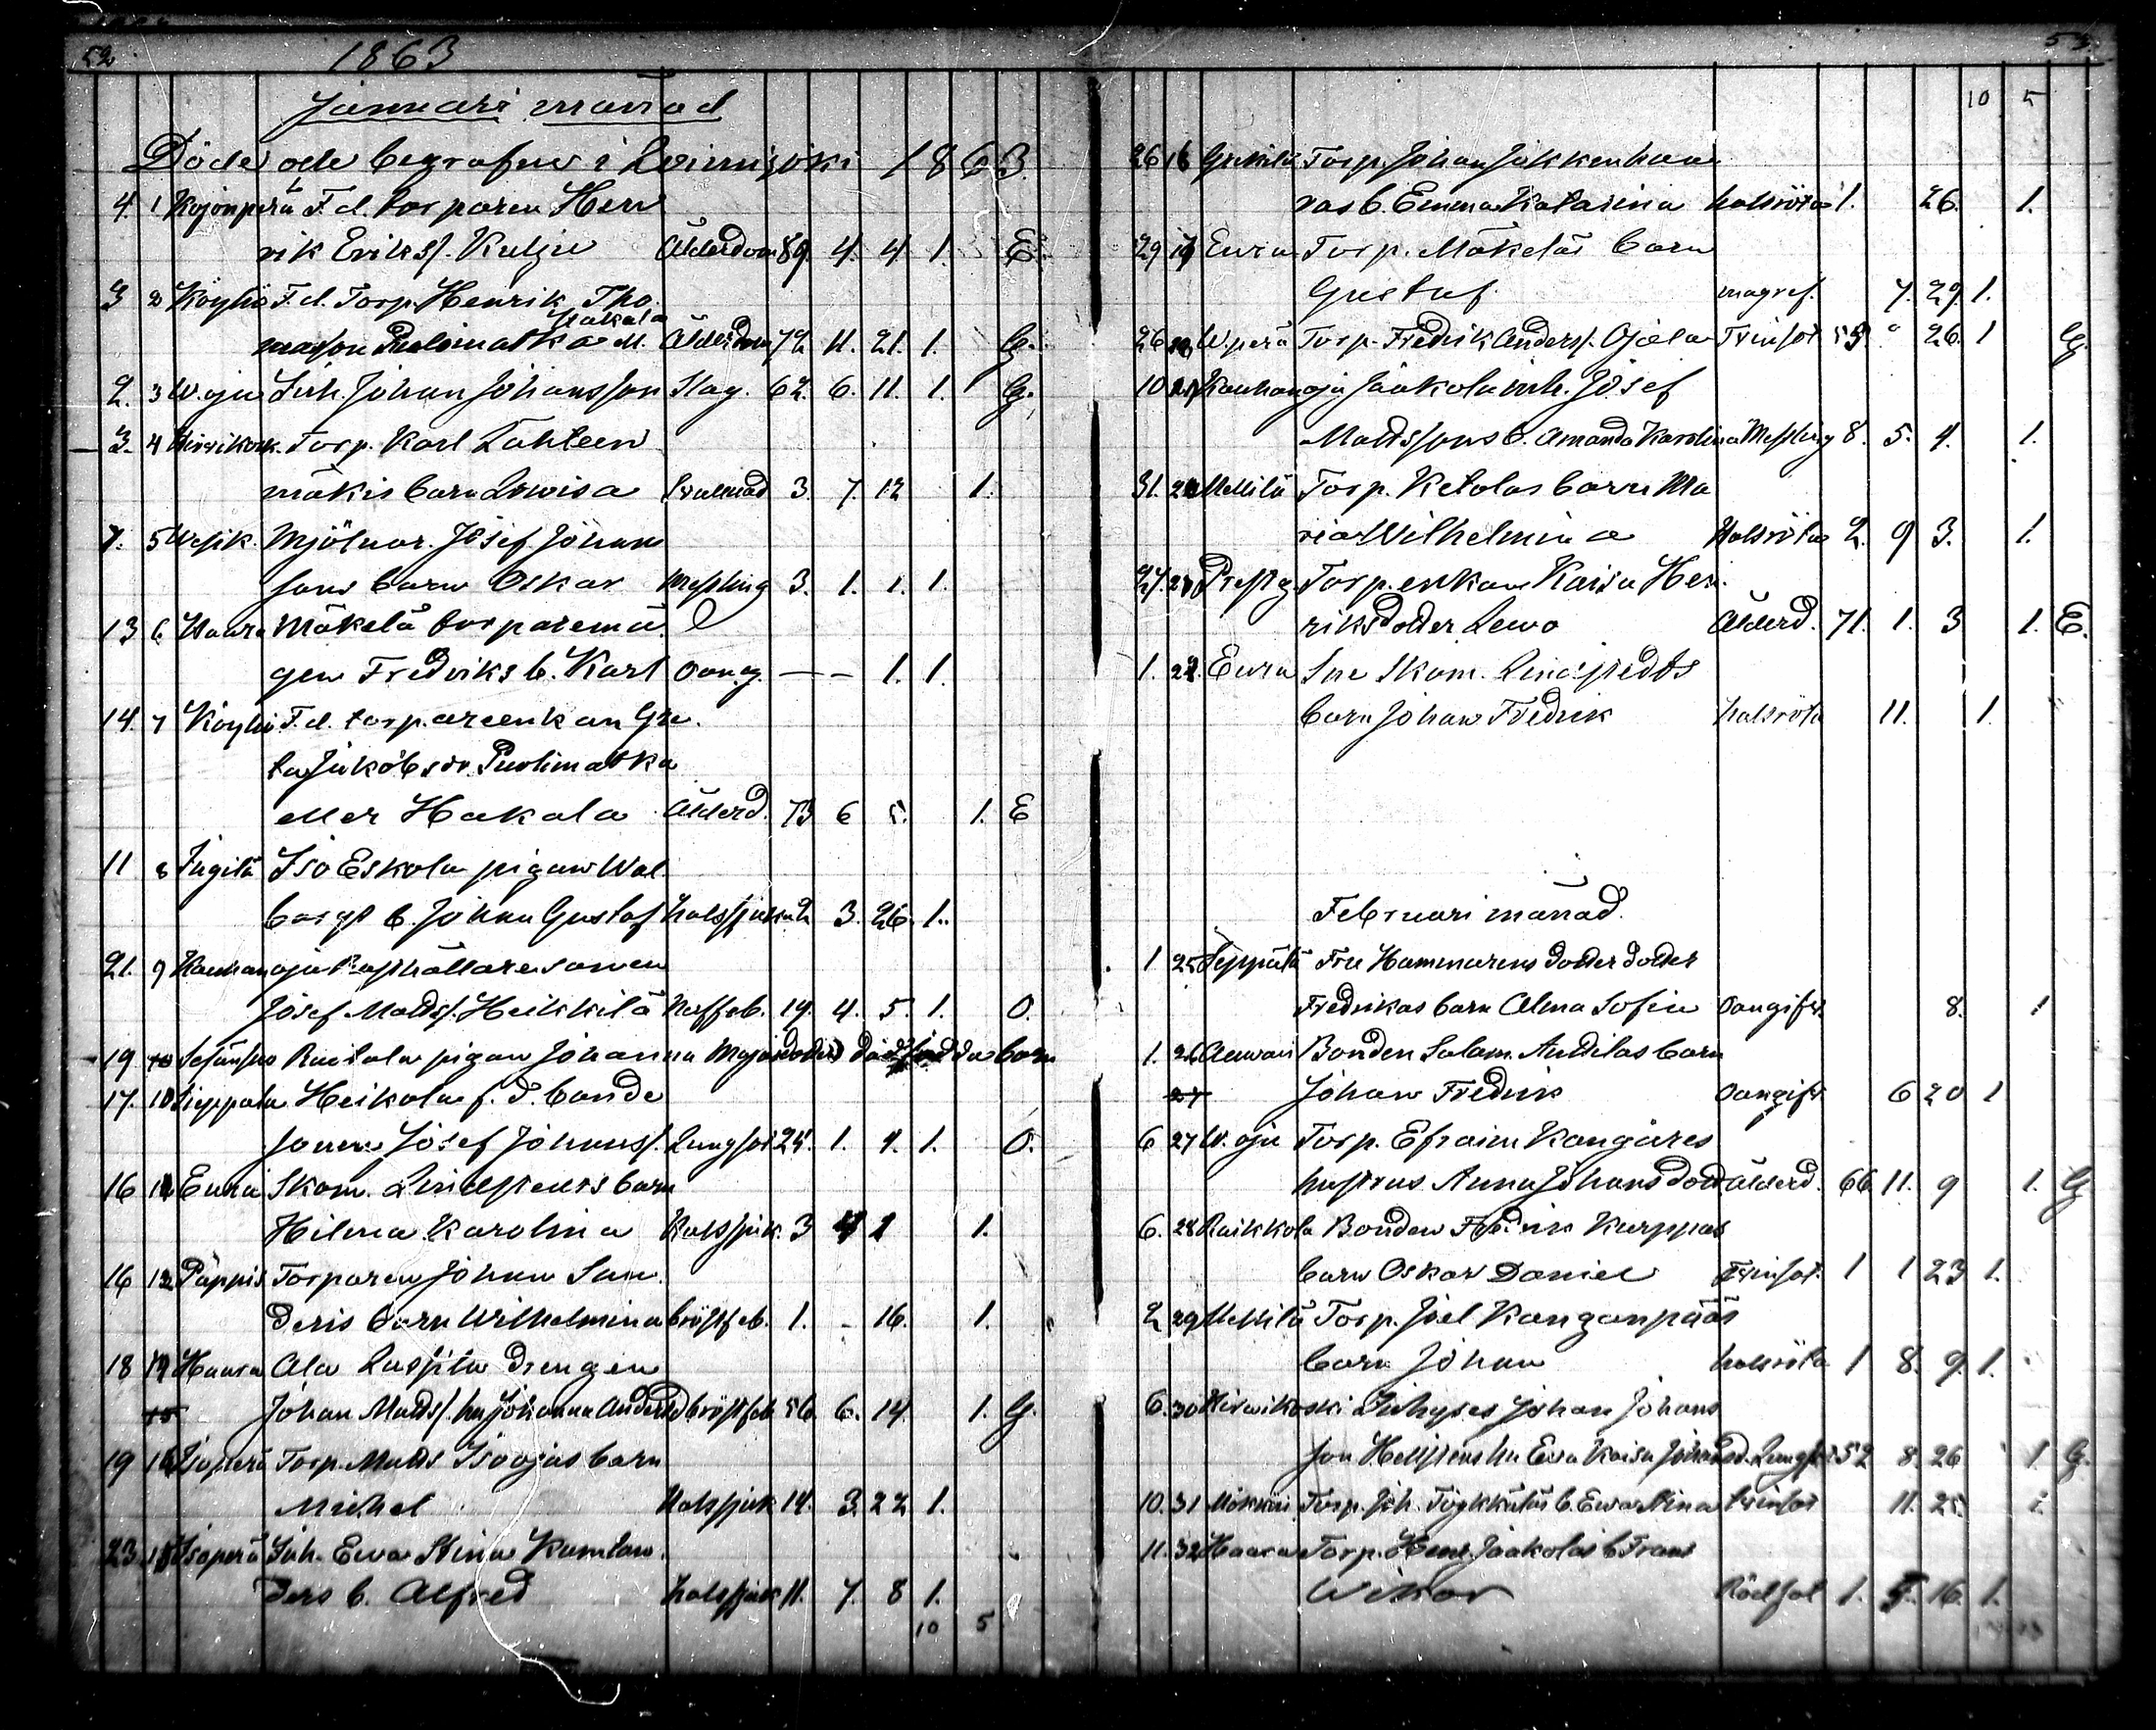 52 1863
Januari månad
Döde ock begrafne i Loimijoki 1863.
4. 1 Kojonperä F. d. torparen Hen
rik Erikss. Kulju Ålderdom 89. 4. 4. 1. E.
3 2 Köyliö F. d. Torp. Henrik Tho.
Hakala
masson Puolimatka Ålderdom 72. 11. 21. 1. G.
2. 3 W.oja Inh. Johan Johansson Slag. 62. 6. 11. 1. G.
3. 4 Hirvikosk. Torp. Karl Lähteen
mäkis barn Lowisa 3. 7. 12 1.
7. 5 Mjölnar. Josef Johans
sons barn Oskar Messling 3. 1. 1. 1.
13 6 Haara Mäkelä torparemå
gen Fredriks b. Karl oang. — — 1. 1.
14. 7 Köyliö F. d. torpareenkan Gre.
ta Jakobsdr. Puolimatka
eller Hakala Ålderd. 73 6 5. 1. E
11 8 Iso Eskola pigan Wal
borgs b. Johan Gustaf halssjuka 2 3. 26. 1.
21. 9 Kauhanoja Rusthållaresonen
Josef Matss. Heikkilä 19. 4. 5. 1. O.
19 10 pigan Johanna dödfödda barn
17. 10 Sieppala Heikola f. d. bonde
sonen Josef Johanss. Lungsot 25. 1. 4. 1. O.
16 Eura Skom. barn
Hilma Karolina Halssjuk. 3 1.
16 12 Pappis Torparen Johan San
deris barn Wilhelmina bröstfeb. 1. - 16. 1.
18 14 Haara Ala drengen
Johan Matss. hu Johanna Andersd bröstfeb 56. 6. 14. 1. G.
19 Isoperä Torp. Matts Isoojas barn
Michel Halssjuk 14. 3. 22 1.
23. Isoperä Inh. Ewa Stina Kumlan
ders b. Alfred halssjuk 11. 7. 8 1.
10 5
53.
10 5
26 Torp. Johan
nas b. Emma Katarina halsröta 1. 26. 1.
29 Eura Torp. Mäkeläs barn
Gustaf. magref. 7. 29 1.
26 W.perä Torp. Fredrik Anderss. Ojala Tvinsot 59. 26. 1 G.
10 Kauhanoja Jaakola inh. Josef
Mattssons b. Amanda Karolina Messling 8. 5. 4. 1.
31. Mellilä Torp. Ketolas barn Ma
ria Wilhelmina Halsröta 2. 9 3. 1.
27. Prestg. Torp.enkan Kaisa Hen.
riksdotter Lewo Ålderd. 71. 1. 3 1. E.
1. Eura Skom. Lindstedts
barn Johan Fredrik halsröta 11. 1.
Februari månad.
1 25 Seppälä Fru Hammarens dotter dotter
Fredrikas barn Alma Sofia Oangifv. 8. 1
1. 26 Bonden Salom. Anttilas barn
27 Johan Fredrik oangifv 6 20 1
6 27 W. oja Torp. Efraim Kangares
hustrus Anna Johansdott Ålderd. 66. 11. 9 1. G
6. 28 Raikkola Bonden Fredrik Kurppas
barn Oskar Daniel Tvinsot. 1 1 23 1.
2 29 Mellilä Torp. Joel Kanganpääs
barn Johan halsröta 1 8. 9. 1.
6. 30 Hirvikoski Inhyses Johan Johans
son hu Ewa Kaisa Johansd. Lungsot 52 8. 26 1 G.
10. 31 Torp. Joh. b. Ewa Stina tvinsot 11. 25
11. 32 Haara Torp. Henr. Jaakolas b. Frans
Wiktor Rödsot 1. 5. 16. 1.